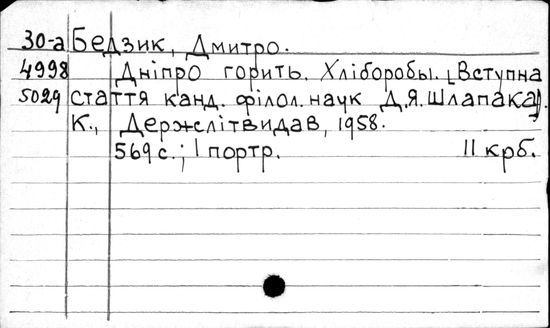 30-а Бедзик, Дмитро.
4998 Дніпро горить. Хлібороби. [Вступна
5029 стаття канд. філол. наук Д.Я. Шлапака].
К., Держлітвидав, 1958.
569 с.; 1 портр. 11 крб.